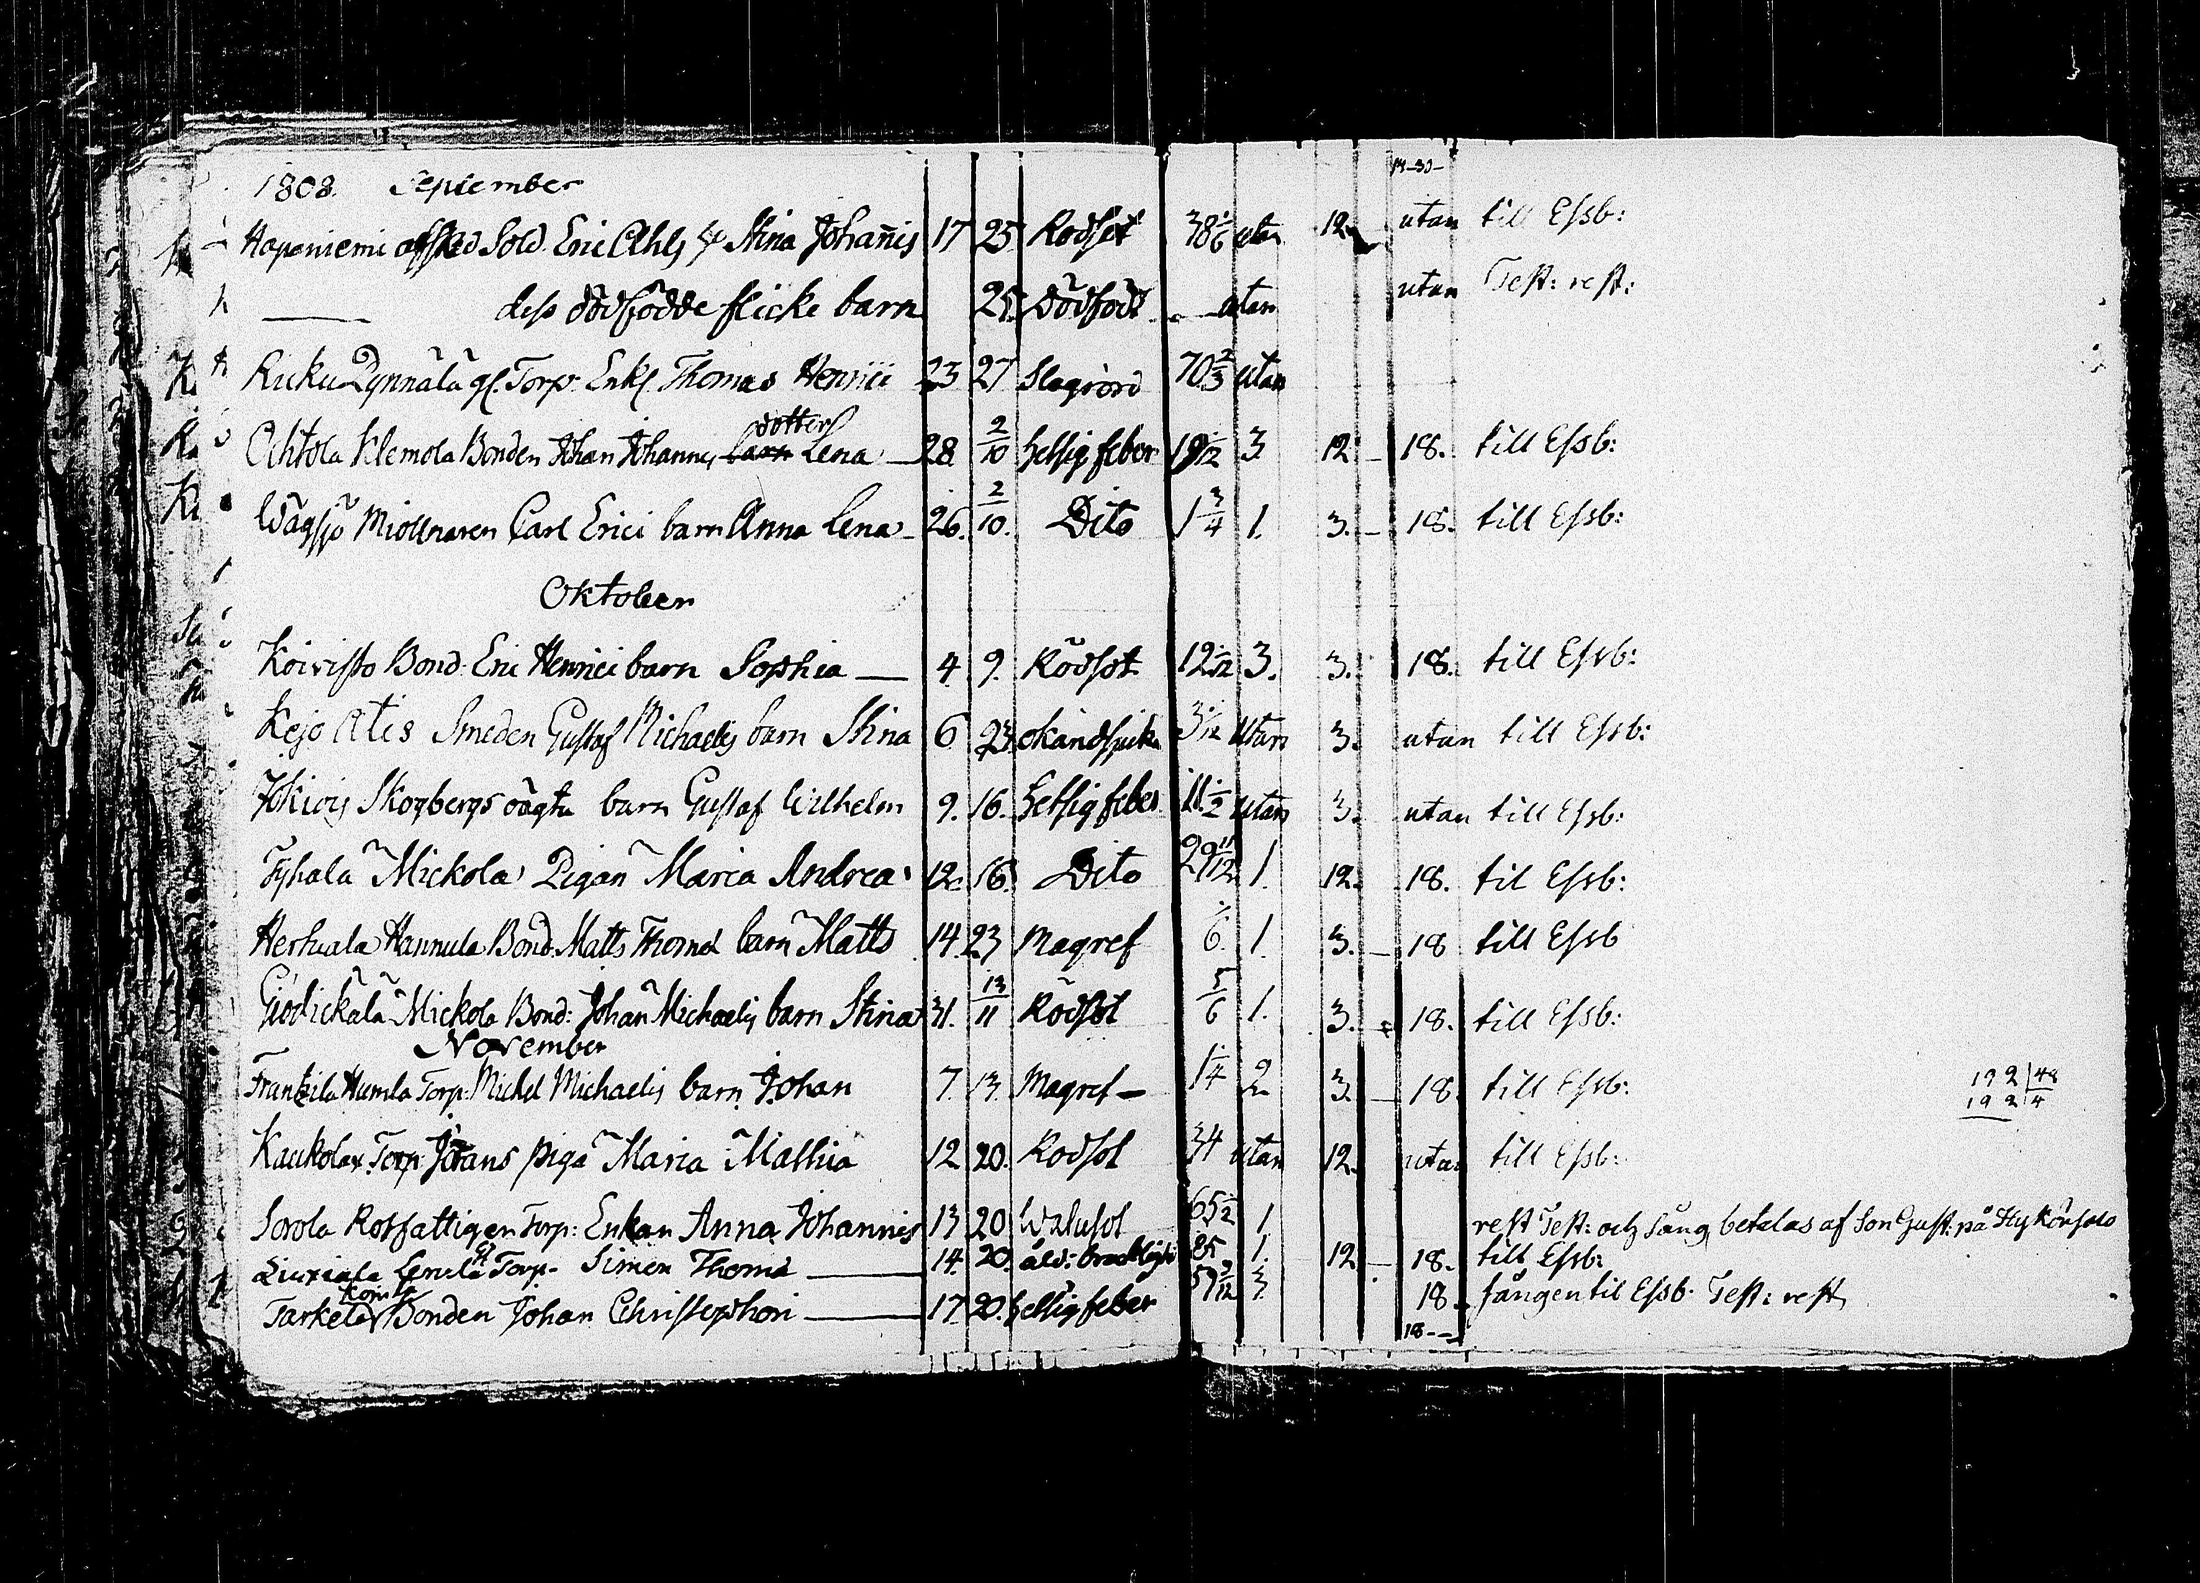 14-30-
1808. September
Haponiemi afsked Sold. Eric Ahlg h: Stina Johañis 17 25 Rödsot 38 1/6 utan 12 utan till Essb:
dess dödfödde flicke barn 25. Dödfödt utan utan Test: rest:
Ruku Pynnälä gl. Torp. Enkl. Thomas Henrici 23 27 Slagrörd 70 2/3 utan
Ochtola Klemola Bonden Johan Johannis dotter Lena 28 2/10 hetsig feber 19 1/12 3 12 - 18. till Essb:
Wågsjö Miölnaren Carl Erici barn Anna Lena - 26. 2/10. Dito 1 3/4 1. 3. - 18. till Essb:
Oktober
Koivisto Bond. Eric Henrici barn Sophia — 4. 9. Rödsot 12 1/12 3. 3. 18. till Essb:
Kejo Atis Smeden Gustaf Michaelis barn Stina 6 23. okänd sjuk 3 1/12 utan 3. utan till Essb:
Jokiois Skogbergs oägta barn Gustaf Wilhelm 9. 16. hetsig feber 11 1/2 utan 3. utan till Essb:
Tyhälä Mickola Pigan Maria Andreæ 12. 16. Dito 29 11/12 1. 12. 18. til Essb:
Herhiala Hannula Bond. Matts Thomæ barn Matts 14. 23 Magref 1/6. 1. 3. - 18 till Essb
Giödickälä Mickola Bond: Johan Michaelis barn Stina 31. 13/11 Rödsot 5/6 1. 3. 18. till Essb:
November
Frantzila Humla Torp: Michel Michaelis barn Johan 7. 13. Magref — 1 1/4 2 3. - 18. till Essb: 192|48
192 4
Kaukola Torp: Jörans piga Maria Mathiæ 12 20. Rödsot 34 utan 12. utan till Essb:
Sorola Rotfattigen Torp: Enkan Anna Johannis 13 20 Watusot 65 1/2 1 rest Test: och sång betalas af Son Gust: på
Liuxiala Lenela gl Torp. Simon Thomæ — 14. 20. åld: bräckligh: 85 1. 12 - 18. till Essb:
Tarkela Bonden Johan Christophori — 17. 20. hetsig feber 57 3/12 3. 18. sången til Essb. Test: rest
18--